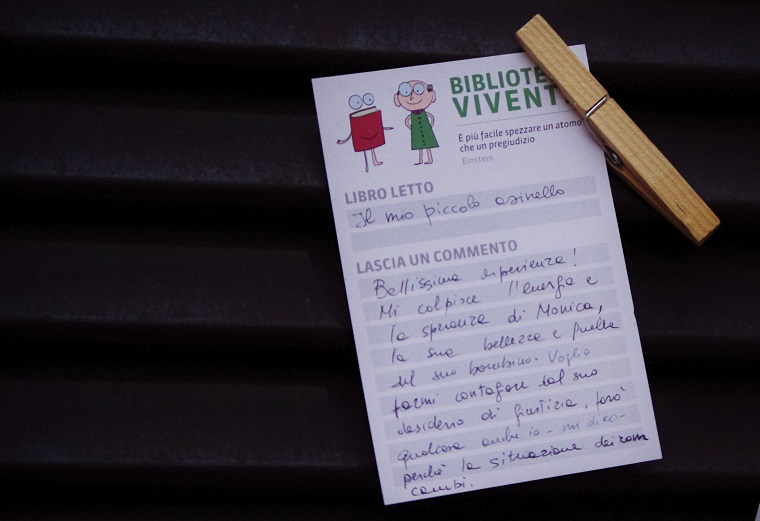 BIBLIOTE
VIVENT
E più facile spezzare un atomo
che un pregiudizio
Einstein
LIBRO LETTO
Il mio piccolo asinello
LASCIA UN COMMENTO
Bellissima esperienza!
Mi colpisce l'energia e
la speranza di Monica,
la sua bellezza e quella
del suo bambino. Voglio
farmi contagiare dal suo
desiderio di giustizia, farò
qualcosa anch'io - mi dico -
perché la situazione dei rom
cambi.